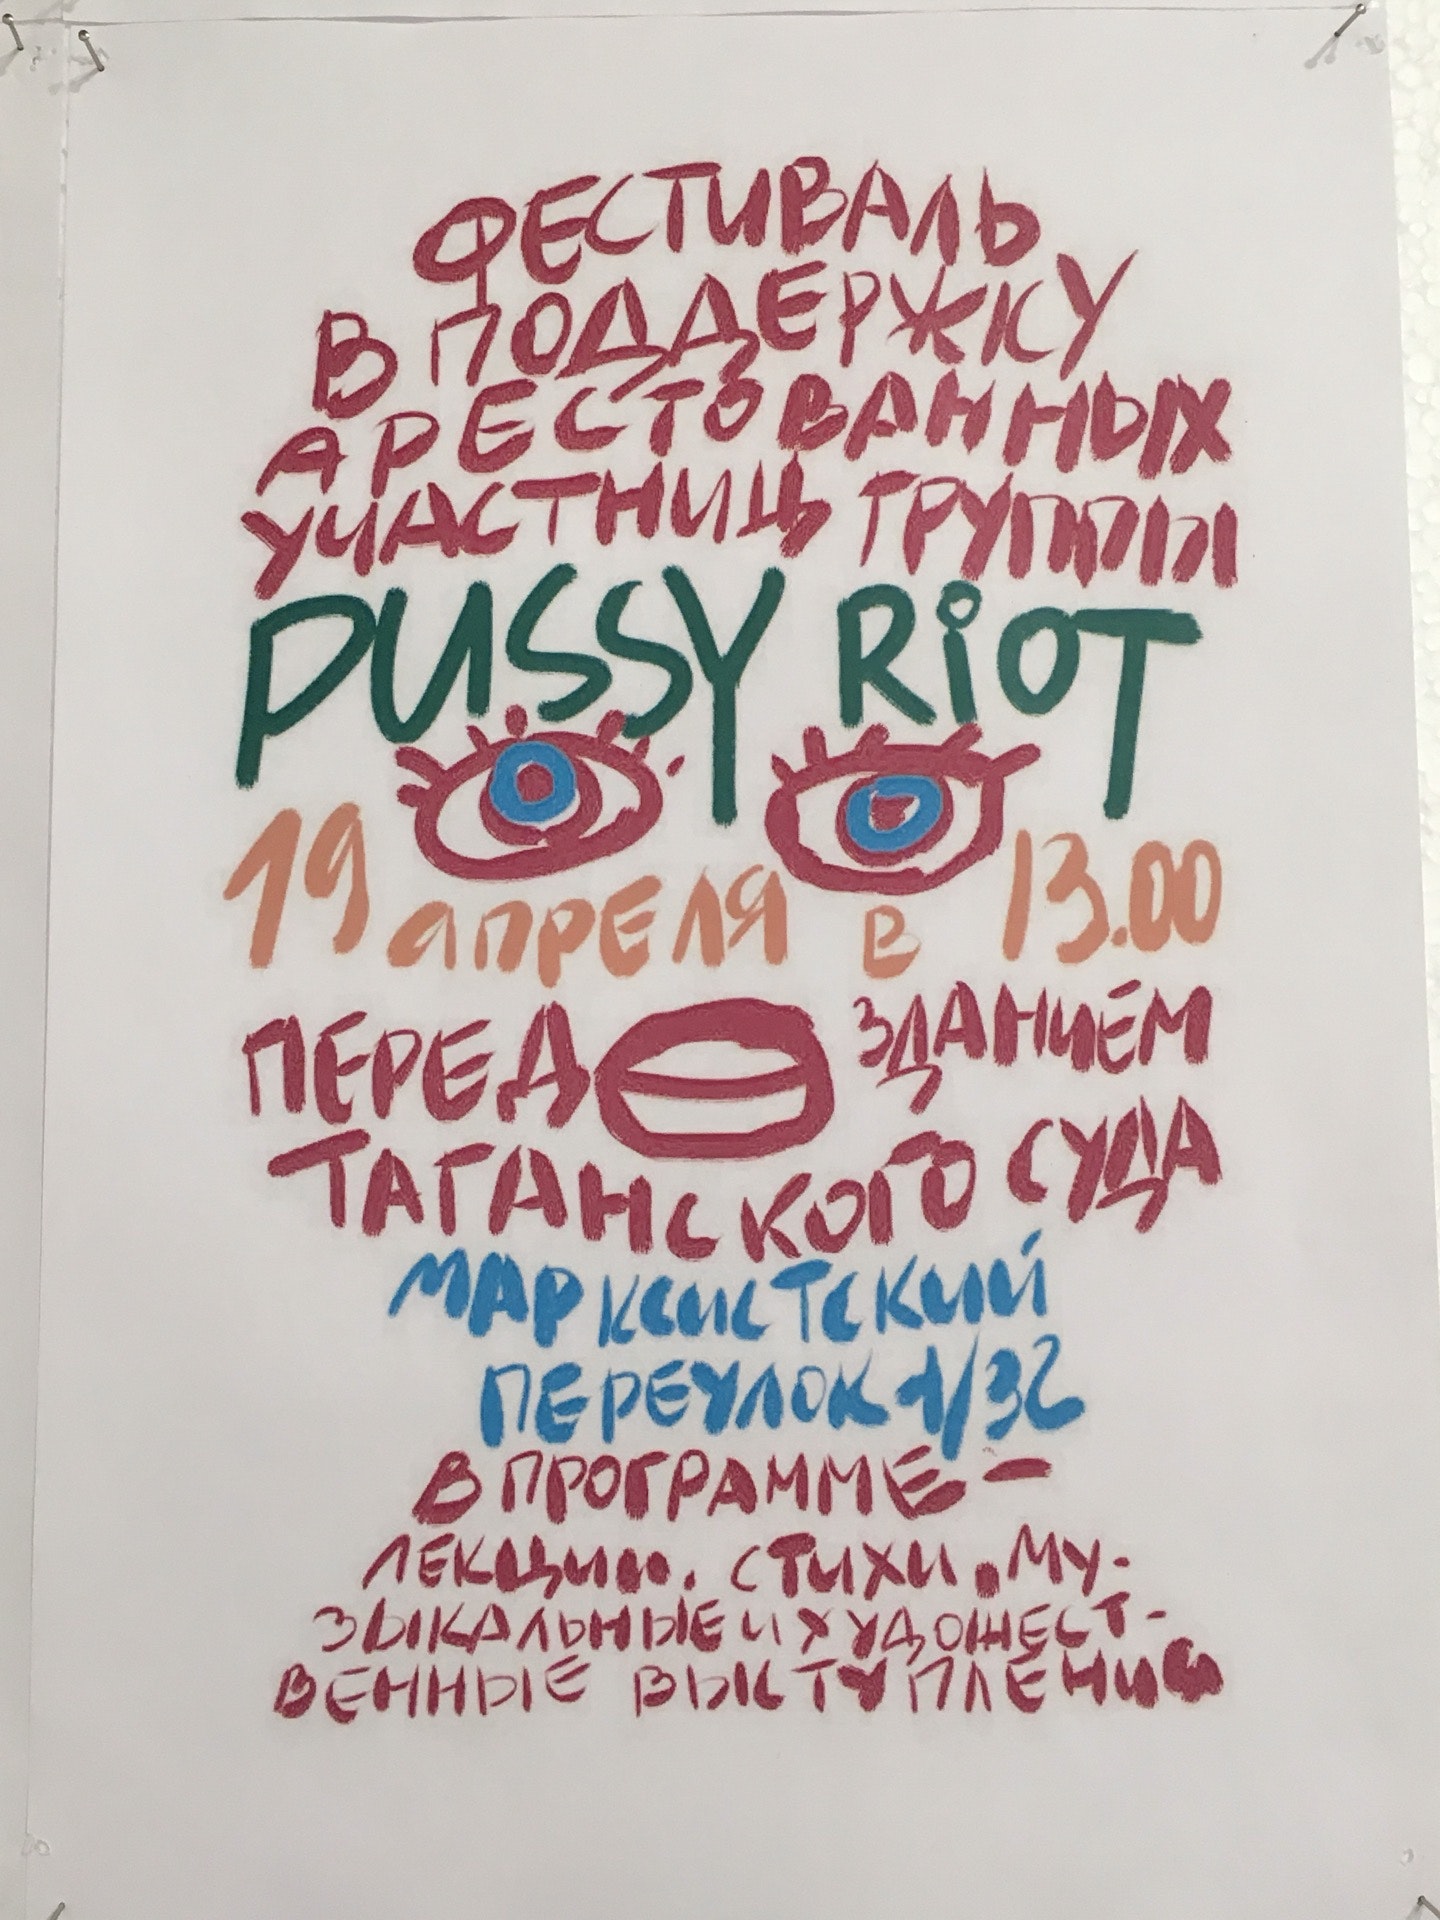 ФЕСТИВАЛЬ
В ПОДДЕРЖКУ
АРЕСТОВАННЫХ
УЧАСТНИЦ ГРУППЫ
PUSSY RiOT
19 апреля в 13.00
ПЕРЕД ЗДАНИЕМ
ТАГАНСКОГО СУДА
МАРКСИСТСКИЙ
ПЕРЕУЛОК 1/32
В ПРОГРАММЕ –
ЛЕКЦИИ, СТИХИ, МУ-
ЗЫКАЛЬНЫЕ И ХУДОЖЕСТ-
ВЕННЫЕ ВЫСТУПЛЕНИЯ